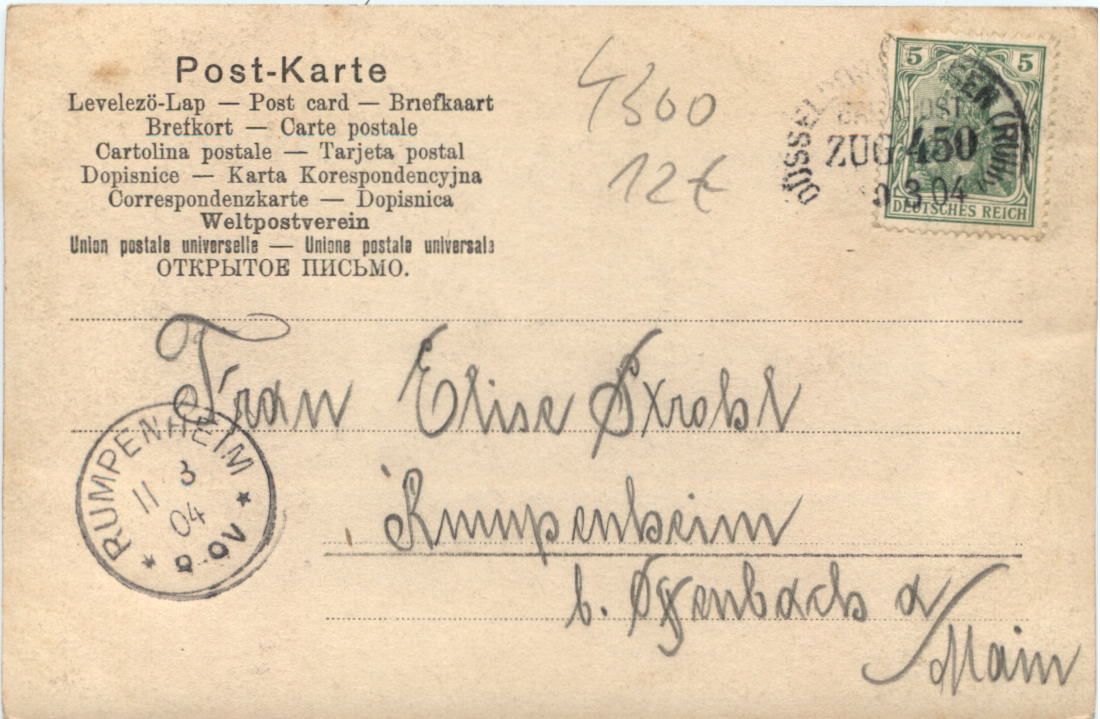 Post-Karte
Levelezö-Lap — Post card — Briefkaart
Brefkort — Carte postale
Cartolina postale — Tarjeta postal
Dopisnice — Karta Korespondencyjna
Correspondenzkarte — Dopisnica
Weltpostverein
Union postale universelle — Unione postale universale
ОТКРЫТОЕ ПИСЬМО.
4300
12€
5 5
DÜSSELDORF (RUHR)
BAHNPOST
ZUG 450
3 04
DEUTSCHES REICH
Frau Elise Strobl
Rumpenheim
b. Offenbach a
Main
RUMPENHEIM
11 3
04
8-9V